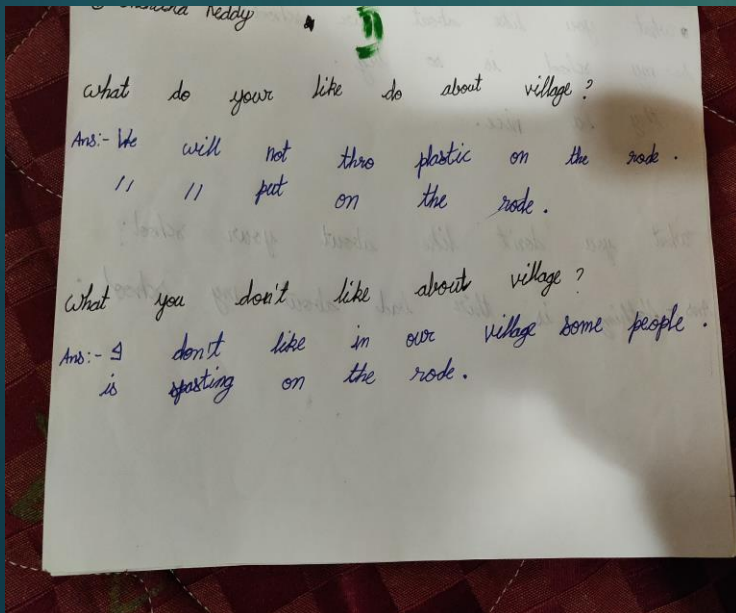 Reddy
What do your like do about village?
Ans:- We will not thro plastic on the rode.
" " put on the rode.
What you don't like about village?
Ans:- I don't like in our village some people.
is spasting on the rode.